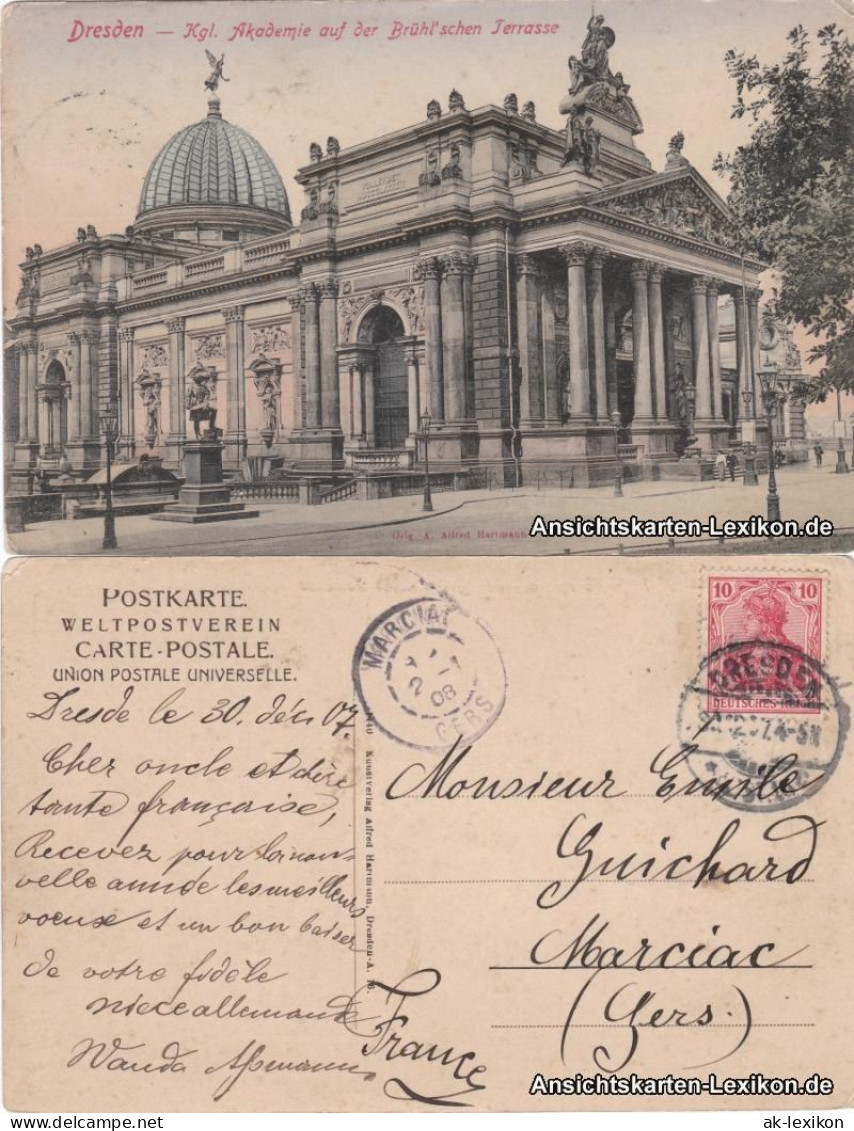 Dresden — Kgl. Akademie auf der Brühl'schen Terrasse
Orig. A. Alfred Hartmann
Ansichtskarten-Lexikon.de
POSTKARTE.
WELTPOSTVEREIN
CARTE-POSTALE.
UNION POSTALE UNIVERSELLE.
MARCIAC
2
08
GERS
10 10
DRESDEN
4-5N
DEUTSCHES REICH
Dresde le 30. déc 07.
Cher oncle et chère
tante française,
Recevez pour la nou-
velle année les meilleurs
voeux et un bon baiser
de votre fidèle
niece allemande
Wanda Aßmann
Kunstverlag Alfred Hartmann, Dresden-A. 16.
Monsieur Emile
Guichard
Marciac
(Gers.)
France
Ansichtskarten-Lexikon.de
ak-lexikon